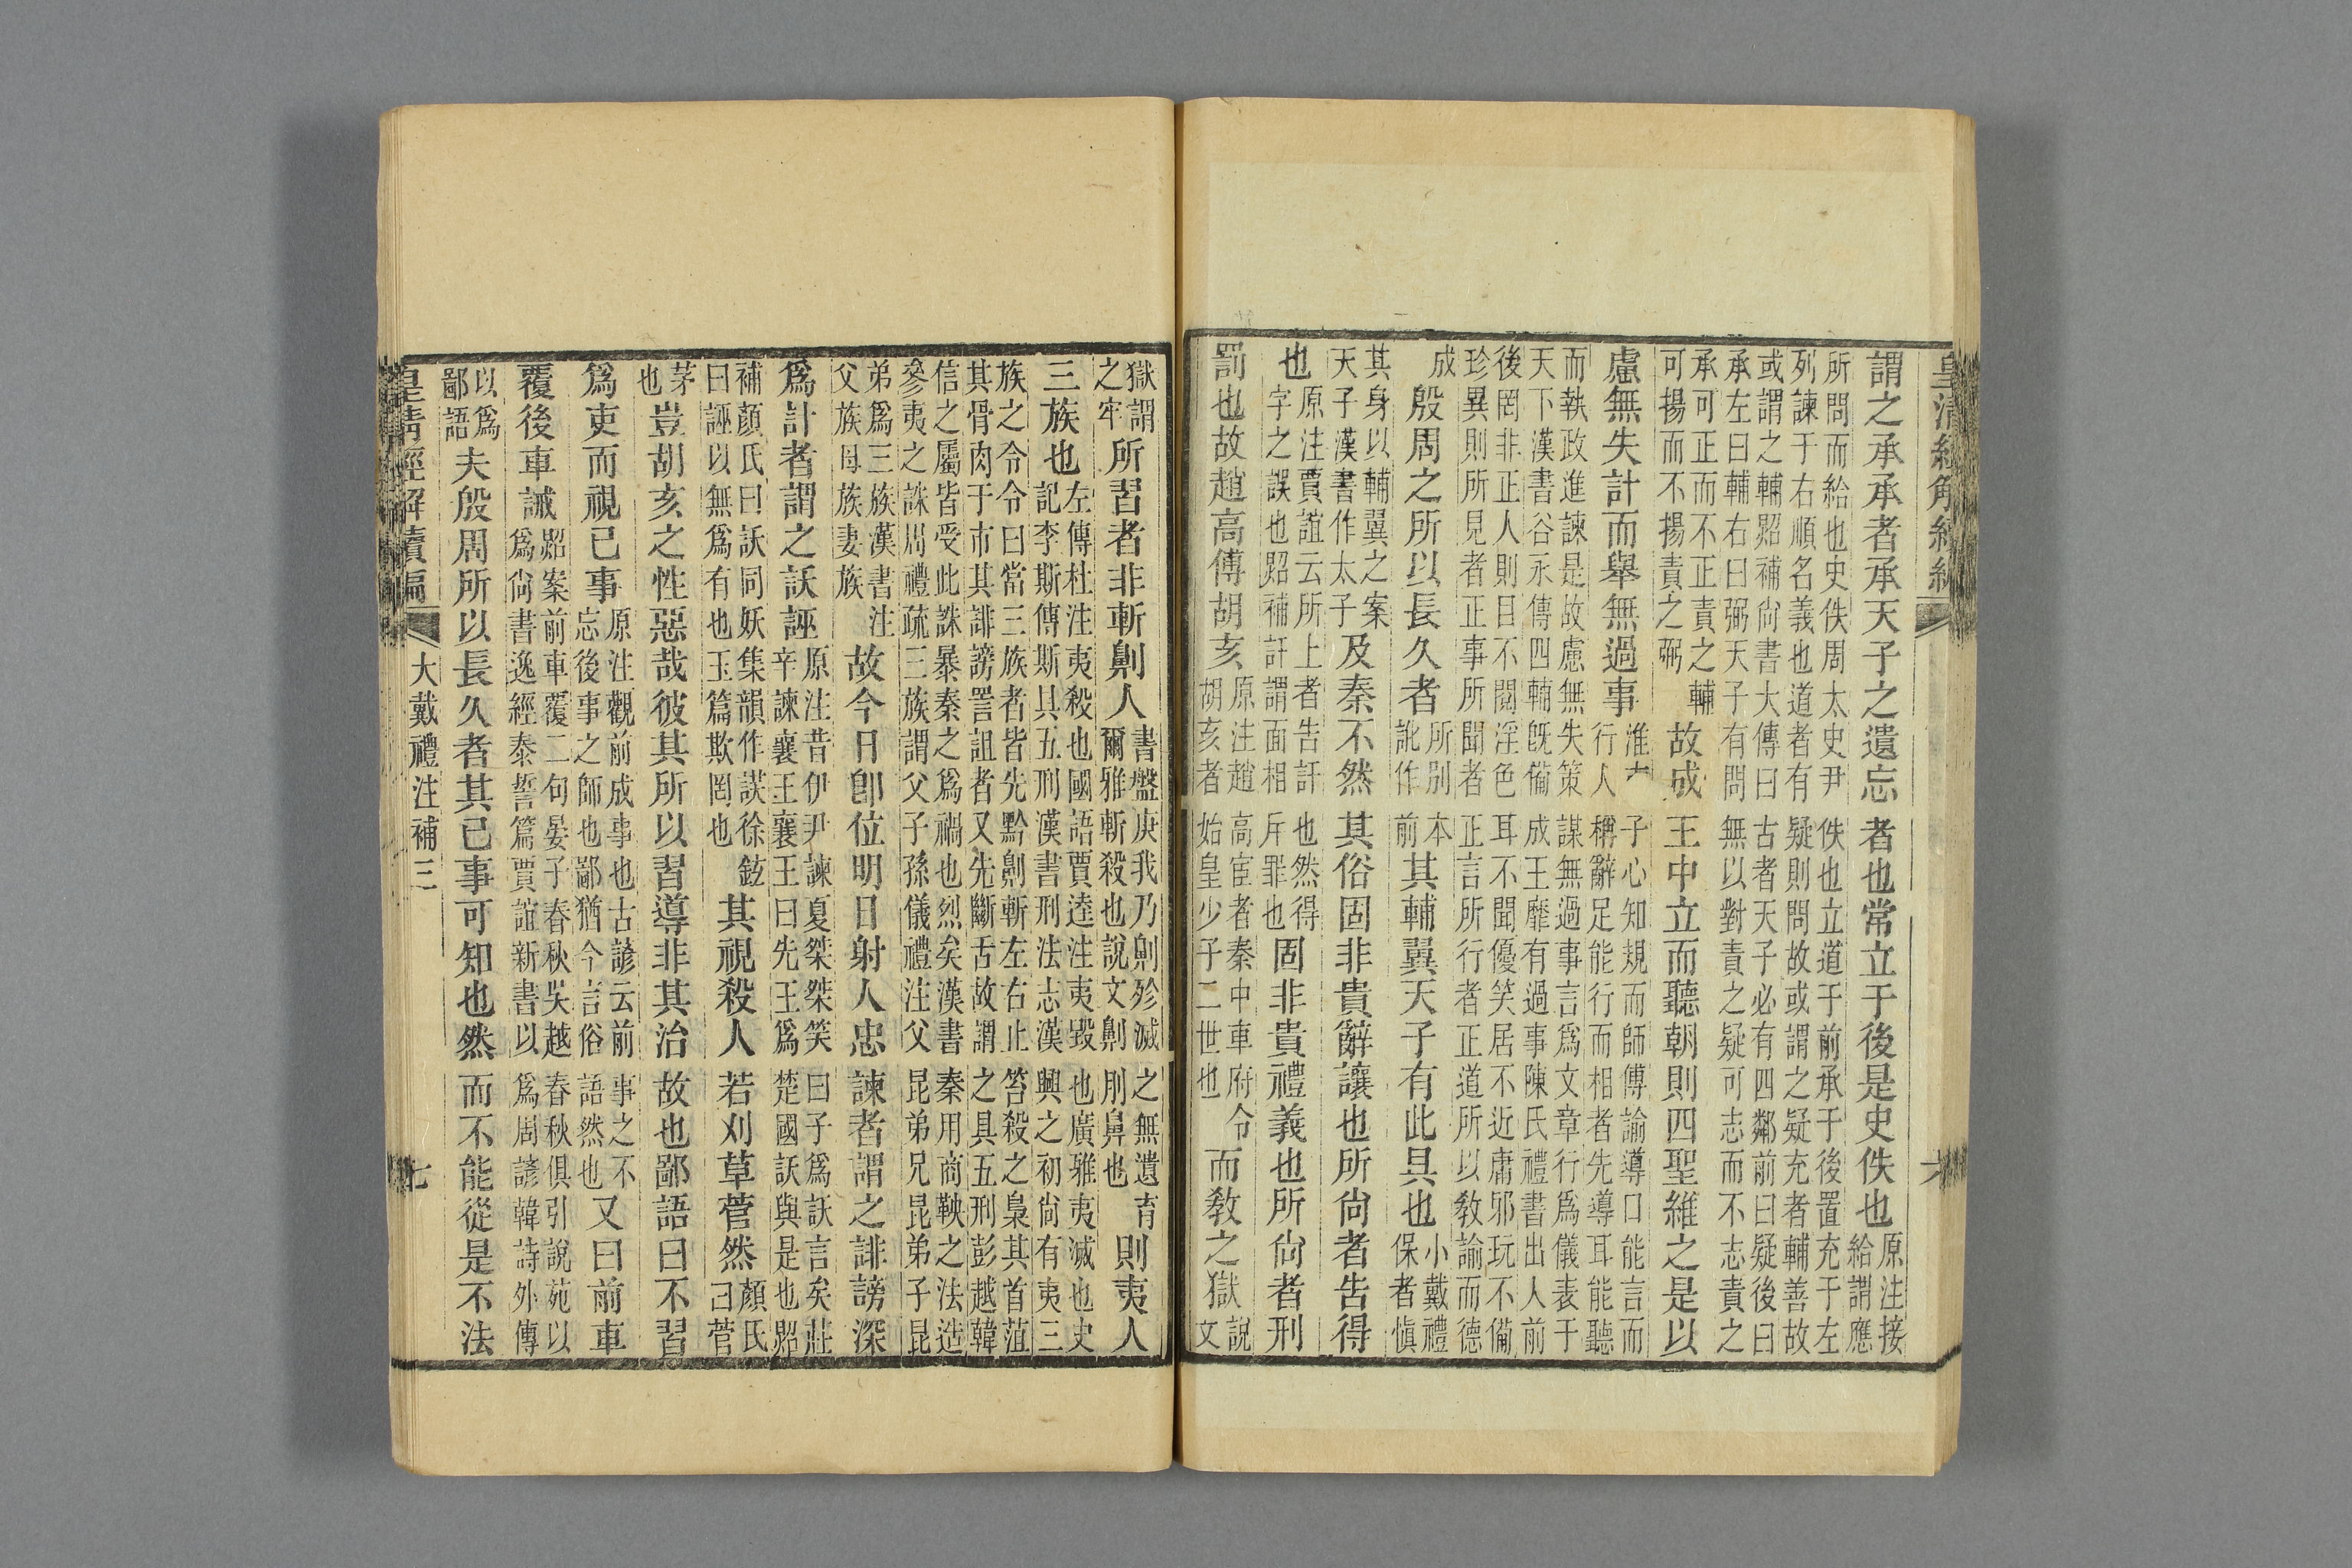 皇清經解續編
六
謂之承承者承天子之遺忘者也常立于後是史佚也原注接
給謂應
所問而給也史佚周太史尹佚也立道于前承于後置充于左
列諫于右順名義也道者有疑則問故或謂之疑充者輔善故
或謂之輔照補尙書大傳曰古者天子必有四鄰前曰疑後曰
承左曰輔右曰弼天子有問無以對責之疑可志而不志責之
承可正而不正責之輔
可揚而不揚責之弼
故成王中立而聽朝則四聖維之是以
慮無失計而舉無過事淮南子心知規而師傅諭導口能言而
行人稱辭足能行而相者先導耳能聽
而執政進諫是故慮無失策謀無過事言爲文章行爲儀表于
天下漢書谷永傳四輔旣備成王靡有過事陳氏禮書出人前
後罔非正人則目不閱淫色耳不聞優笑居不近庸邪玩不備
珍異則所見者正事所聞者正言所行者正道所以敎諭而德
成
殷周之所以長久者所別本
訛作前
其輔翼天子有此具也小戴禮
保者愼
其身以輔翼之案
天子漢書作太子
及秦不然其俗固非貴辭讓也所尙者告得
也原注賈誼云所上者告訐也然得
字之誤也照補訐謂面相斥罪也
固非貴禮義也所尙者刑
罰也故趙高傅胡亥原注趙高宦者秦中車府令
胡亥者始皇少子二世也
而敎之獄說
文
獄謂
之牢
所習者非斬劓人書盤庚我乃劓殄滅之無遺育
爾雅斬殺也說文劓刖鼻也
則夷人
三族也左傳杜注夷殺也國語賈逵注夷毀也廣雅夷滅也史
記李斯傳斯具五刑漢書刑法志漢興之初尙有夷三
族之令令曰當三族者皆先黥劓斬左右止笞殺之梟其首菹
其骨肉于市其誹謗詈詛者又先斷舌故謂之具五刑彭越韓
信之屬皆受此誅暴秦之爲禍也烈矣漢書秦用商鞅之法造
參夷之誅周禮疏三族謂父子孫儀禮注父昆弟兄昆弟子昆
弟爲三族漢書注
父族母族妻族
故今日卽位明日射人忠諫者謂之誹謗深
爲計者謂之訞誣原注昔伊尹諫夏桀桀笑曰子爲訞言矣莊
辛諫襄王襄王曰先王爲楚國訞與是也照
補顏氏曰訞同妖集韻作䄏徐鉉
曰誣以無爲有也玉篇欺罔也
其視殺人若刈草菅然顏氏
曰菅
茅
也
豈胡亥之性惡哉彼其所以習導非其治故也鄙語曰不習
爲吏而視已事原注觀前成事也古諺云前事之不
忘後事之師也鄙猶今言俗語然也
又曰前車
覆後車誡照案前車覆二句晏子春秋吳越春秋俱引說苑以
爲尙書逸經泰誓篇賈誼新書以爲周諺韓詩外傳
以爲
鄙語
夫殷周所以長久者其已事可知也然而不能從是不法
皇淸經解續編
大戴禮注補三
七